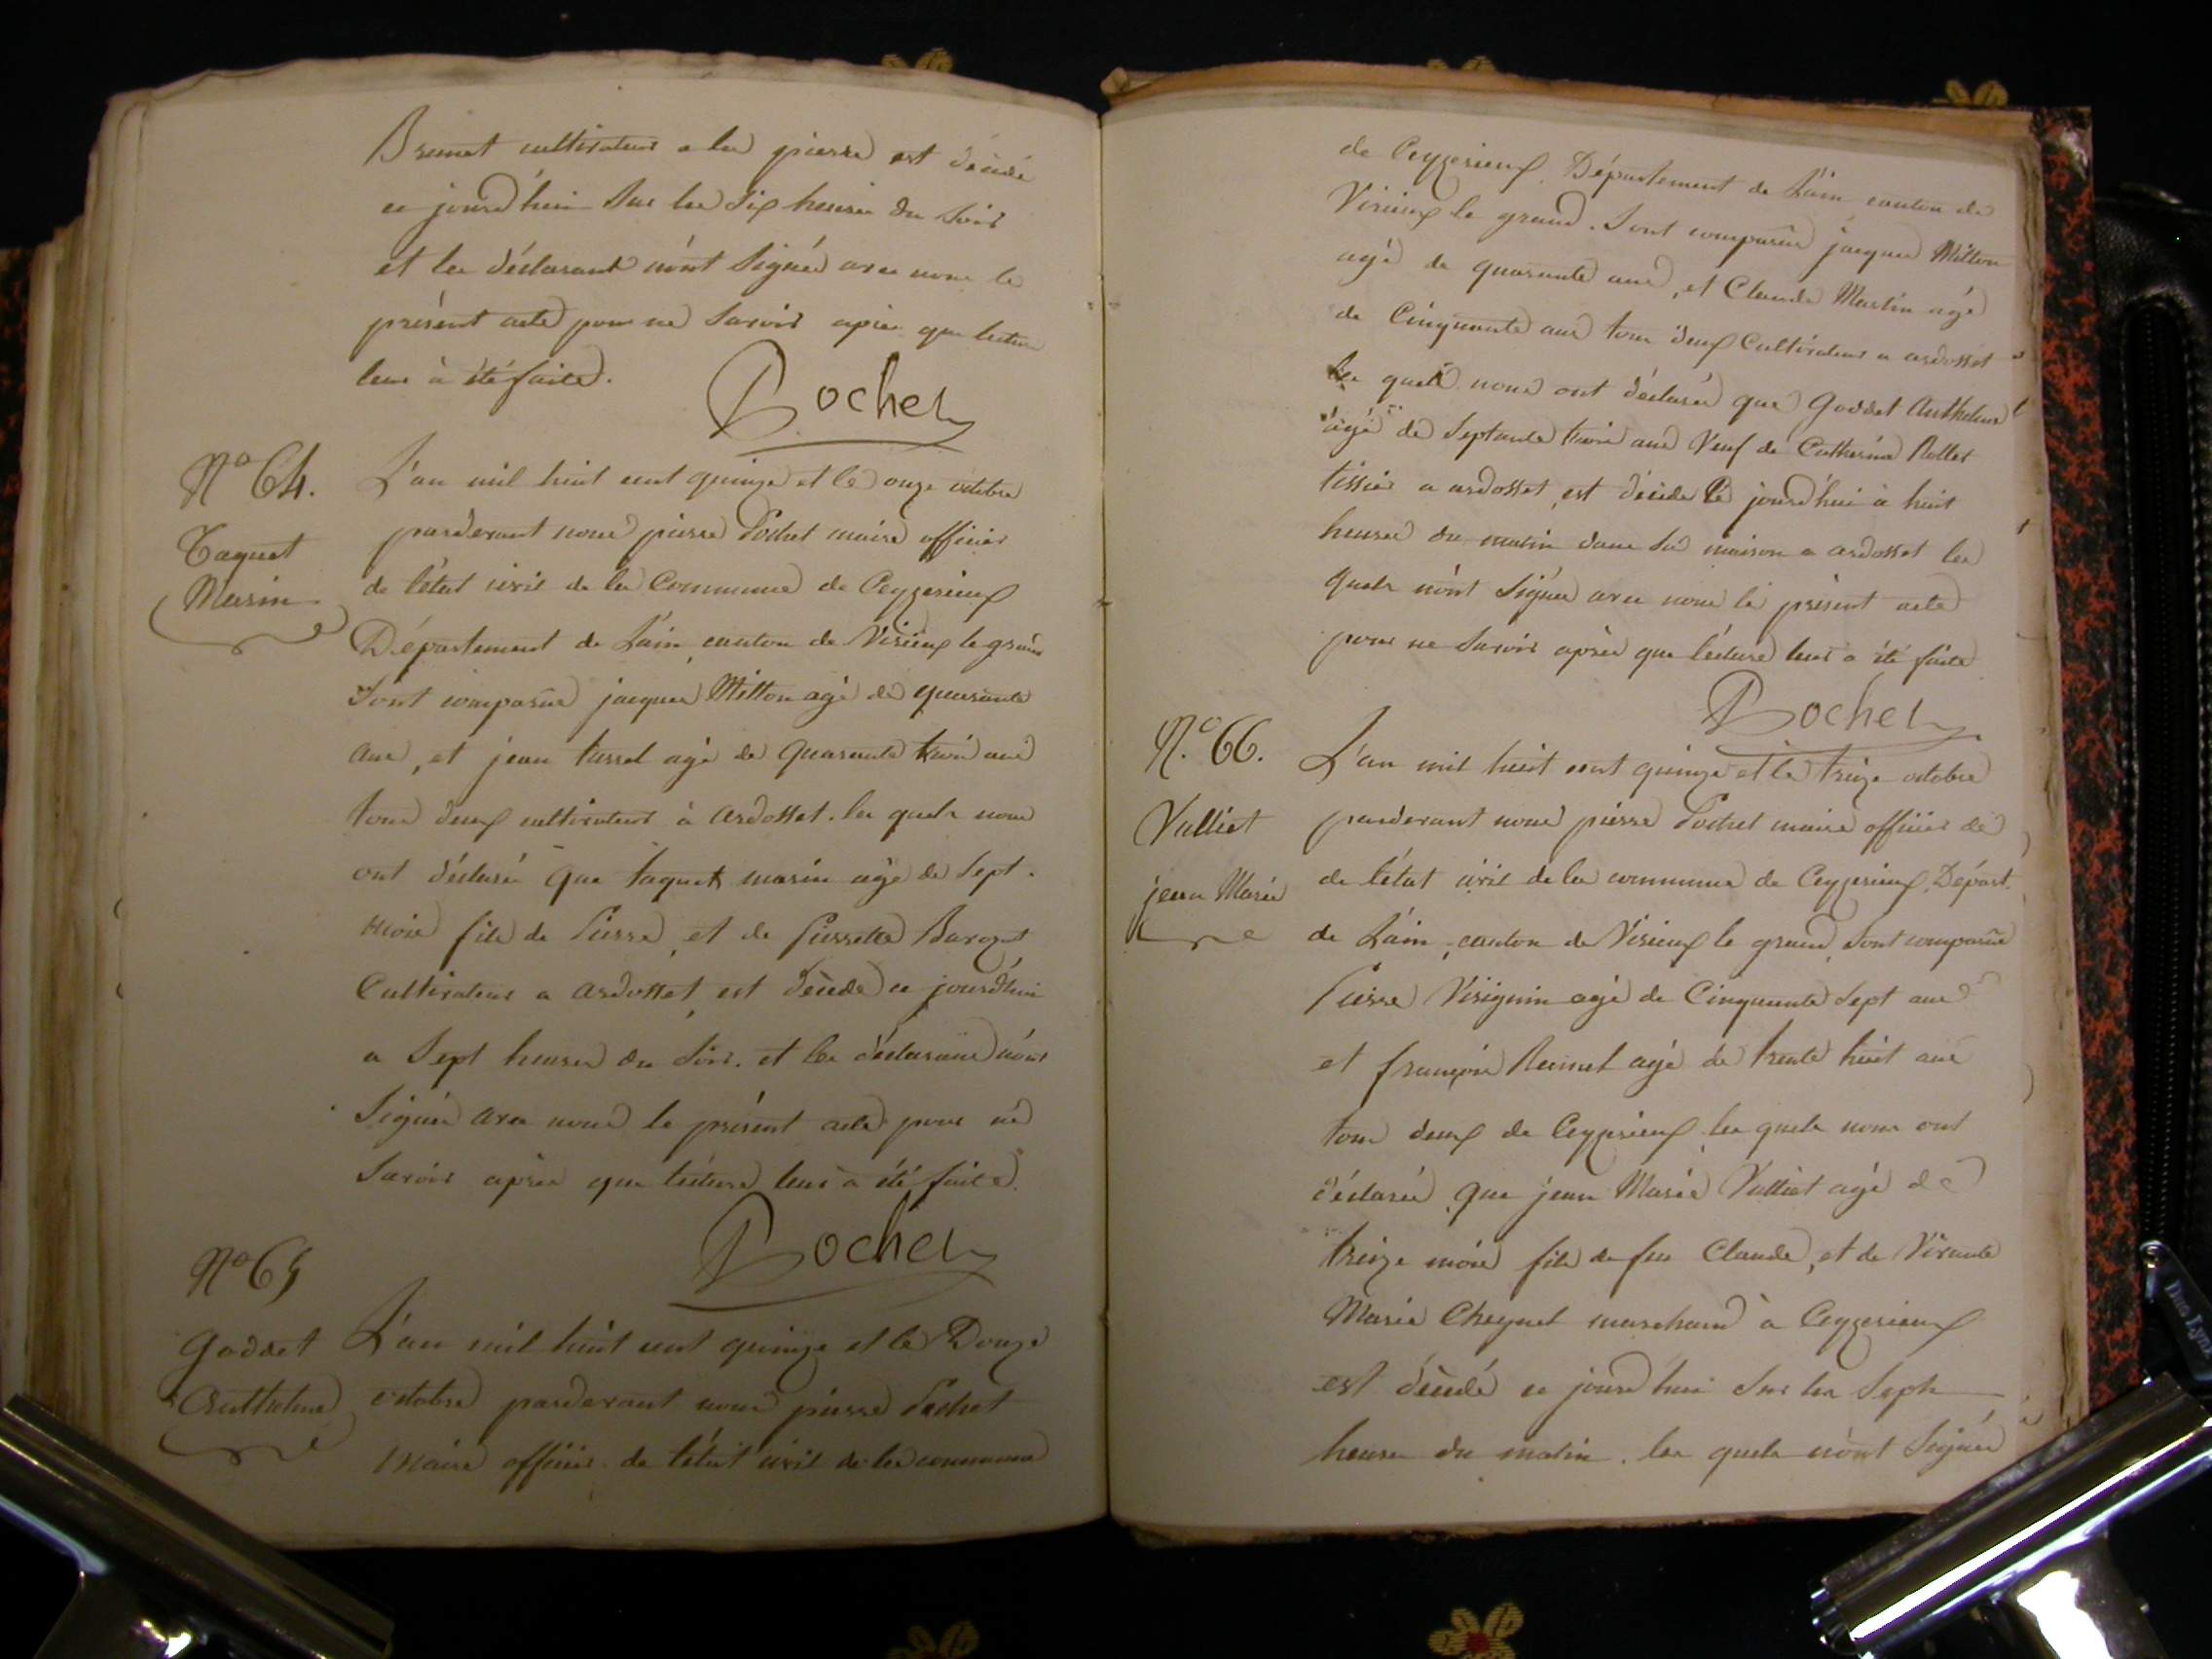 Brunet cultivateur a la pierre est décédé
ce jourd'hui sur les six heures du soir
et les déclarant n'ont signés avec nous le
présent acte pour ne savoir après que lecture
leur à été faite.
Pochet
N° 64.
Taquet
Marin
L'an mil huit cent quinze et le onze octobre
pardevant nous pierre Pochet maire officier
de l'état civil de la Commune de Ceyzerieux
Département de L'ain, canton de Virieux le grand
Sont comparus jacques Mitton agé de quarante
ans, et jean tussel agé de quarante trois ans
tous deux cultivateurs à ardosset. les quels nous
ont déclarés que taquet marin agé de sept
mois fils de Pierre, et de Pierrette Barozet
Cultivateur a ardosset, est décédé ce jourd'hui
a sept heures du soir. et les déclarans n'ont
Signés avec nous le présent acte pour ne
Savoir après que lecture leur à été faite.
Pochet
N° 65
goddet
Anthelme
L'an mil huit cent quinze et le Douze
octobre pardevant nous pierre Pochet
Maire officier de l'état civil de la commune
de Ceyzerieux, Département de L'ain canton de
Virieux le grand. Sont comparus jacques Mitton
agé de quarante ans, et Claude Martin agé
de Cinquante ans tous deux Cultivateurs a ardosset
les quels nous ont déclarés que goddet Anthelme
agé de septante trois ans Veuf de Catherine Rollet
tissier a ardosset, est décédé ce jourd'hui à huit
heures du matin dans sa maison a ardosset les
quels n'ont signés avec nous le présent acte
pour ne savoir après que lecture leur a été faite
Pochet
N.° 66.
Valliet
jean Marie
L'an mil huit cent quinze et le treize octobre
pardevant nous pierre Pochet maire officier de
de l'état civil de la commune de Ceyzerieux, Départ.
de L'ain, canton de Virieux le grand, sont comparus
Pierre Virignin agé de Cinquante sept ans
et françois agé de trente huit ans
tous deux de Ceyzerieux, les quels nous ont
déclarés que jean Marie Valliet agé de
treize mois fils de feu Claude, et de Vivante
Marie marchand à Ceyzerieux
est décédé ce jourd'hui sur les sept
heures du matin. les quels n'ont signés